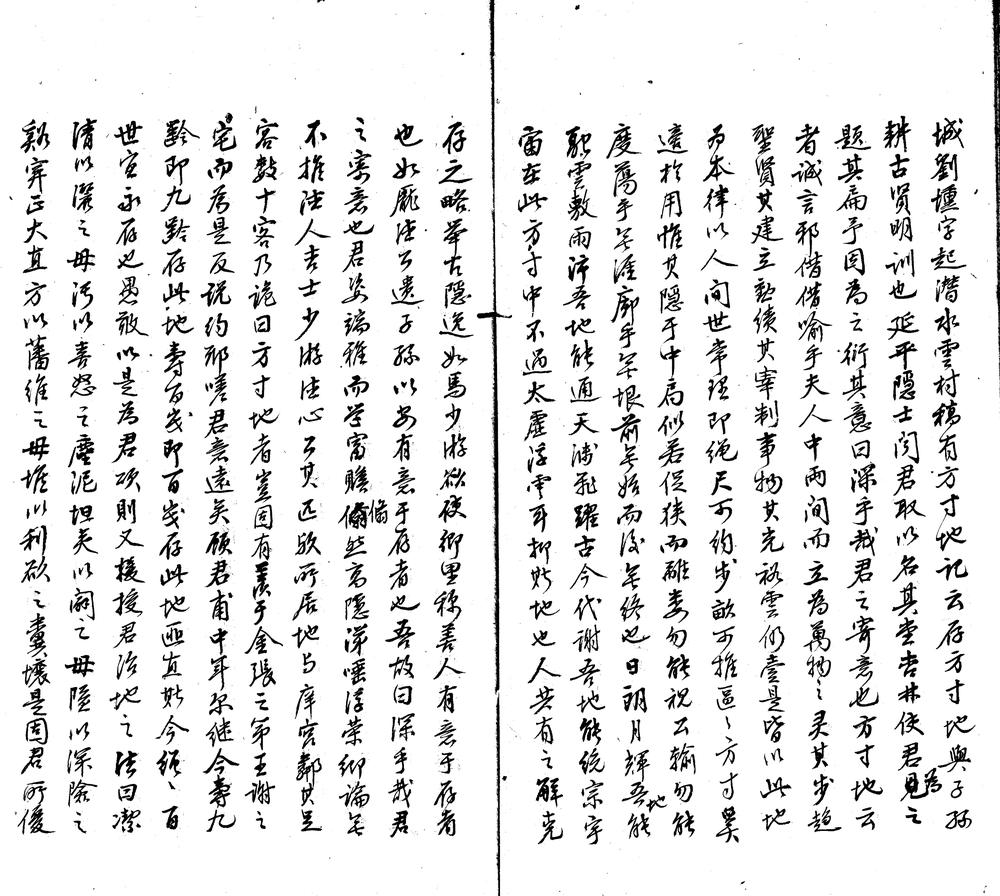 城劉壎字起潛水雲村稿有方寸地記云存方寸地與子孫
耕古賢明訓也延平隱士闵君取以名其堂杏林使君為見之
題其扁予因為之衍其意曰深乎哉君之寄意也方寸地云
者誠言邪借借喻乎夫人中兩間而立為萬物之灵其步趨
聖賢其建立勳績其宰制事物其克裕雲仍壹是皆以此地
為本律以人间世常理即绳尺可约步畝可推區〻方寸奚
遠於用惟其隱于中高似若促狭而離婁勿能視公输勿能
度蕩乎無涯廓乎無垠前無始而後無终也日朗月輝吾地能
融雲敷雨沛吾地能通天沸飛躍古今代謝吾地能统宗宇
宙在此方寸中不過太虚浮雲耳抑斯地也人共有之鮮克
存之略舉古隱逸如馬少游欲使鄉里稱善人有意于存者
也如龐德公遗子孫以安有意于存者也吾故曰深乎哉君
之寄意也君姿端雅而学富贍翛然高隱涕唾浮荣鄉論無
不推法人吉士少游法心公其匹欤所居地与庠宫鄰其足
容數十客乃詭曰方寸地者豈固有羨于金張之第王謝之
宅而為是反説约邪嗟君意遠矣顾君甫中年尔继今壽九
齡即九齡存此地壽百歲即百歲存此地匪直斯今绳〻百
世宜永存也愚敢以是為君頌則又援授君治地之法曰潔
清以濯之毋污以喜怒之塵泥坦夷以闢之毋隘以深險之
谿穽正大直方以藩维之毋堆以利欲之糞壤是固君所優